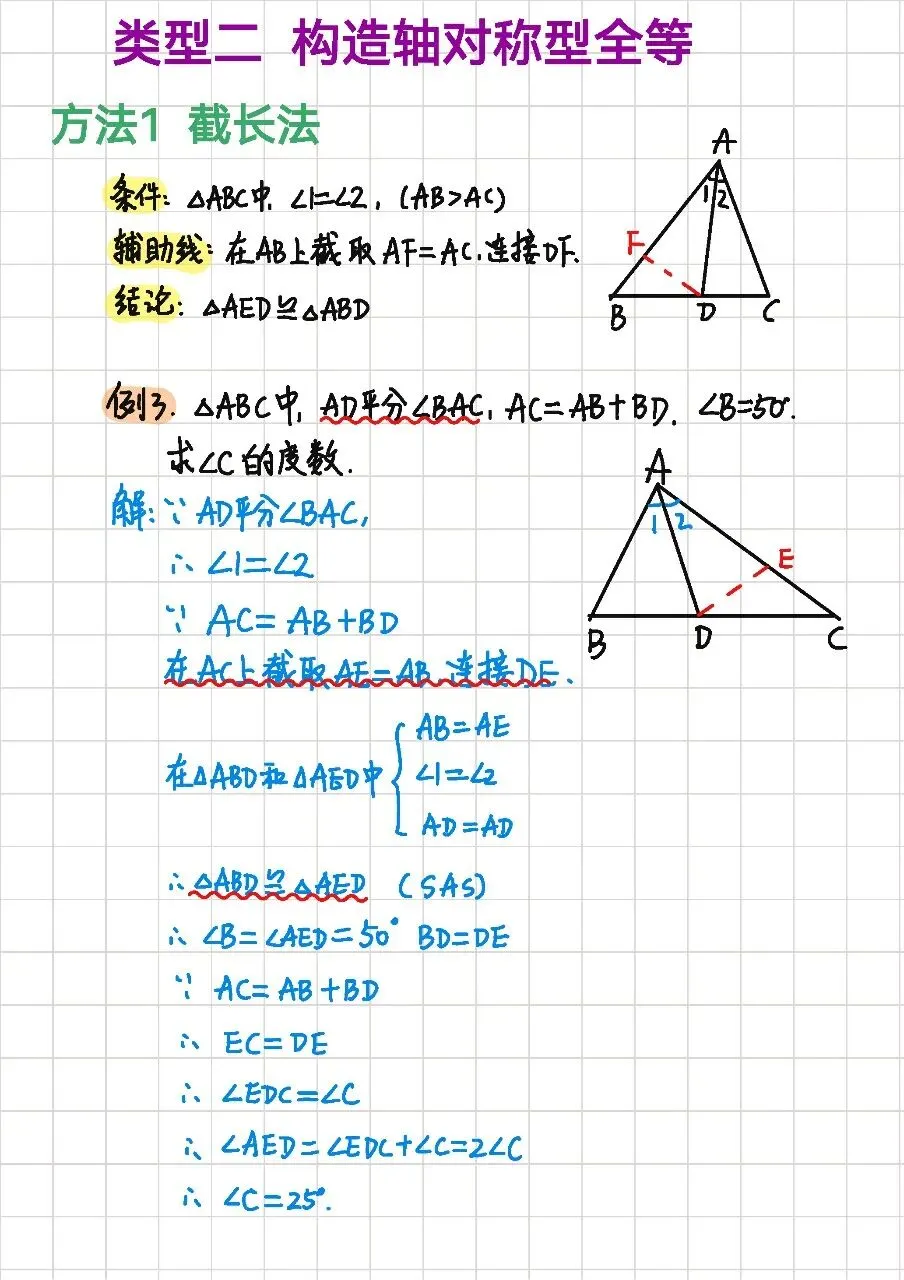 类型二 构造轴对称型全等
方法1 截长法
条件: △ABC中, ∠1=∠2, (AB>AC)
辅助线: 在AB上截取AF=AC,连接DF.
结论: △AED≌△ABD
A
1 2
F
B D C
例3. △ABC中, AD平分∠BAC, AC=AB+BD. ∠B=50°.
求∠C的度数.
A
1 2
E
B D C
解: ∵ AD平分∠BAC,
∴ ∠1=∠2
∵ AC=AB+BD
在AC上截取AE=AB,连接DE.
在△ABD和△AED中
AB=AE
∠1=∠2
AD=AD
∴ △ABD≌△AED (SAS)
∴ ∠B=∠AED=50° BD=DE
∵ AC=AB+BD
∴ EC=DE
∴ ∠EDC=∠C
∴ ∠AED=∠EDC+∠C=2∠C
∴ ∠C=25°.